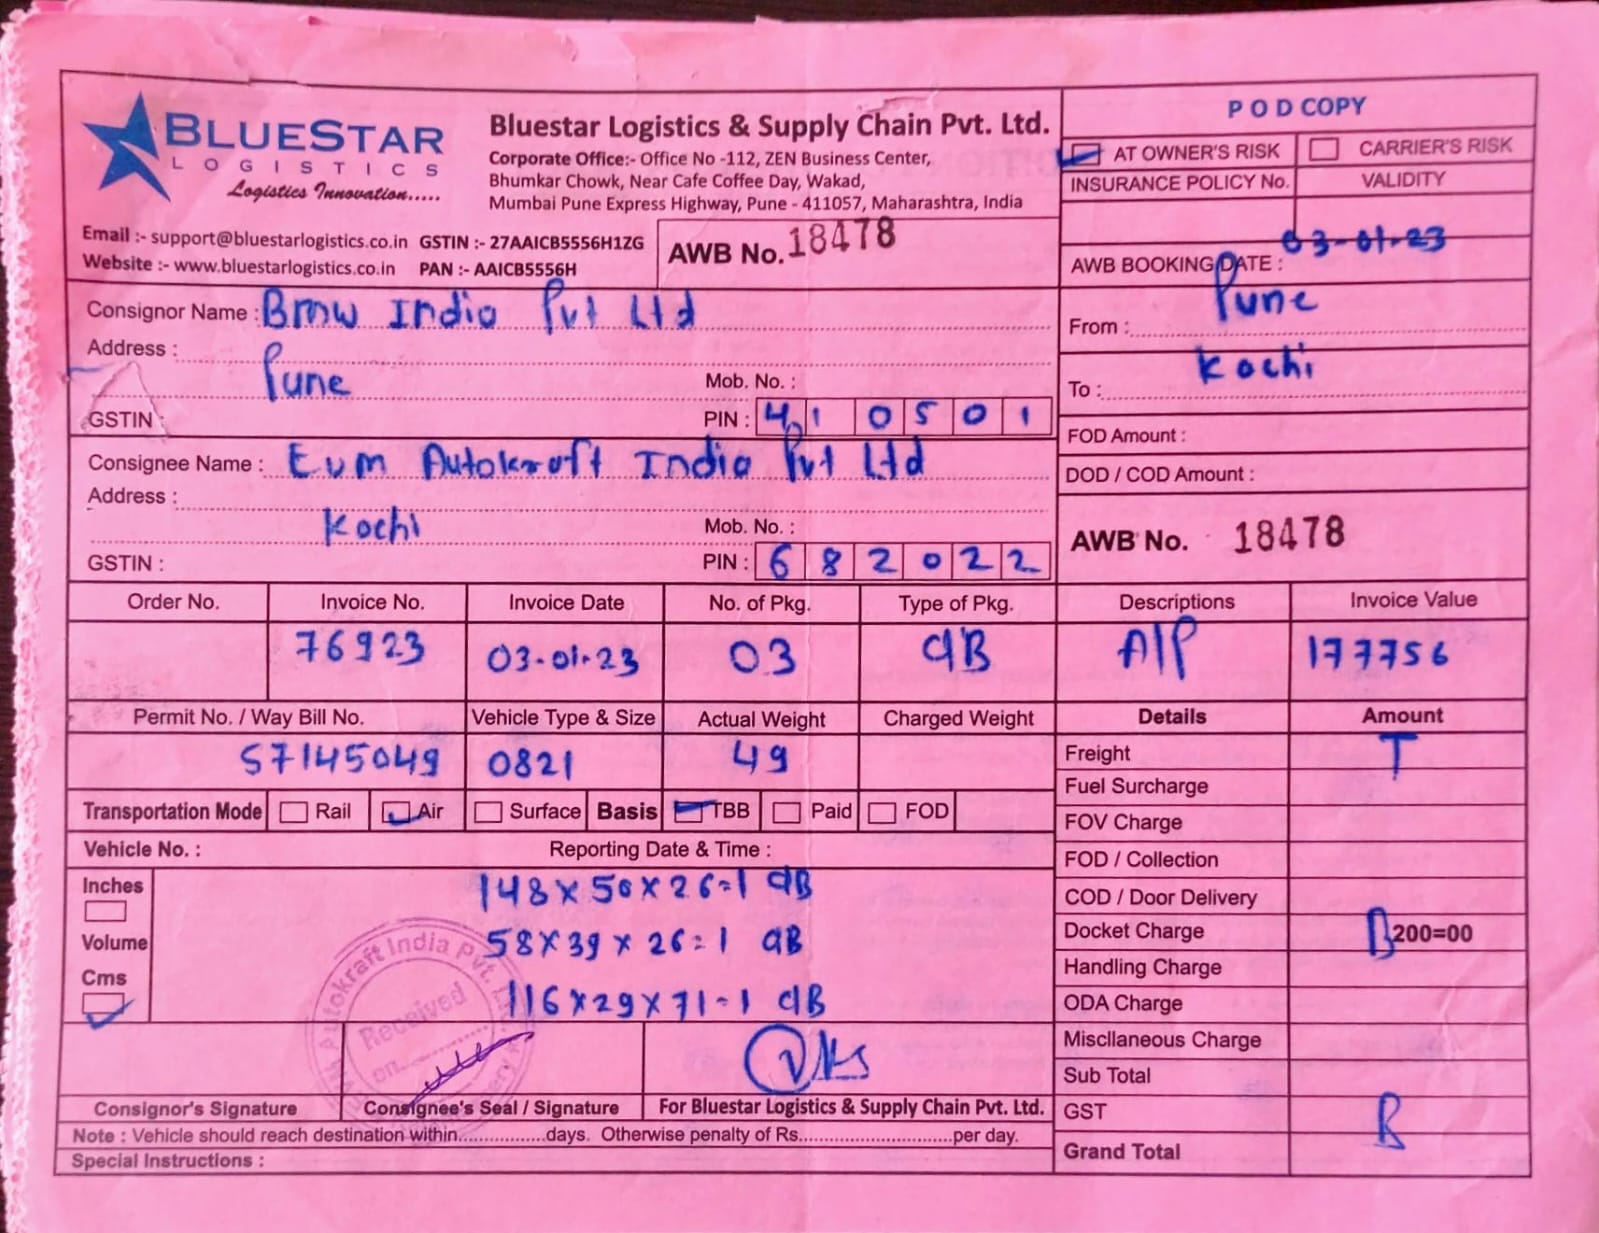 BLUESTAR
LOGISTICS
Logistics Innovation.....
Bluestar Logistics & Supply Chain Pvt. Ltd.
Corporate Office:- Office No -112, ZEN Business Center,
Bhumkar Chowk, Near Cafe Coffee Day, Wakad,
Mumbai Pune Express Highway, Pune - 411057, Maharashtra, India
Email :- support@bluestarlogistics.co.in GSTIN :- 27AAICB5556H1ZG
Website :- www.bluestarlogistics.co.in PAN :- AAICB5556H
AWB No. 18478
POD COPY
AT OWNER'S RISK CARRIER'S RISK
INSURANCE POLICY No. VALIDITY
AWB BOOKING DATE : 03-01-23
From : Pune
To : Kochi
FOD Amount :
DOD / COD Amount :
AWB No. 18478
Consignor Name : Bmw India Pvt Ltd
Address :
Pune Mob. No. :
GSTIN : PIN : 410501
Consignee Name : Evm Autokraft India Pvt Ltd
Address :
Kochi Mob. No. :
GSTIN : PIN : 682022
Order No. Invoice No. Invoice Date No. of Pkg. Type of Pkg. Descriptions Invoice Value
76923 03-01-23 03 CIB A/P 177756
Permit No. / Way Bill No. Vehicle Type & Size Actual Weight Charged Weight Details Amount
57145049 0821 49
Transportation Mode Rail Air Surface Basis TBB Paid FOD
Vehicle No. : Reporting Date & Time :
Inches
Volume
Cms
148x50x26=1 CIB
58x39x26=1 CIB
116x29x71=1 CIB
Freight T
Fuel Surcharge
FOV Charge
FOD / Collection
COD / Door Delivery
Docket Charge B 200=00
Handling Charge
ODA Charge
Miscllaneous Charge
Sub Total
GST B
Grand Total
Autokraft India Pvt.
Received
on
Consignor's Signature Consignee's Seal / Signature For Bluestar Logistics & Supply Chain Pvt. Ltd.
Note : Vehicle should reach destination within.................days. Otherwise penalty of Rs.............................per day.
Special Instructions :